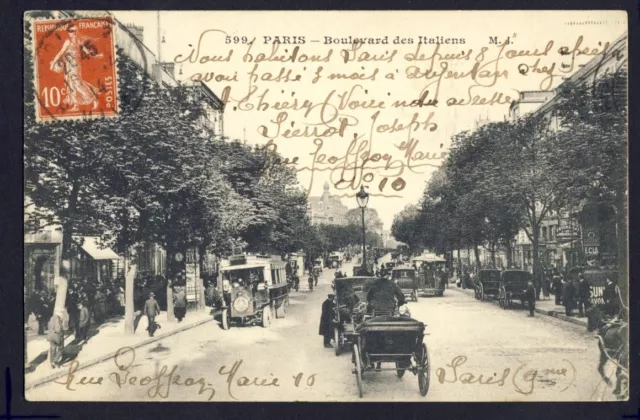 REPUBLIQUE FRANÇAISE
10c
POSTES
599. PARIS — Boulevard des Italiens M. J.
Nous habitons Paris depuis 8 jours après
avoir passé 3 mois à argentan chez
Thiéry (Voici notre adresse
Pierrot Joseph
Rue Geoffroy Marie
No 10
SUN
Rue Geoffroy Marie 10 Paris (9me